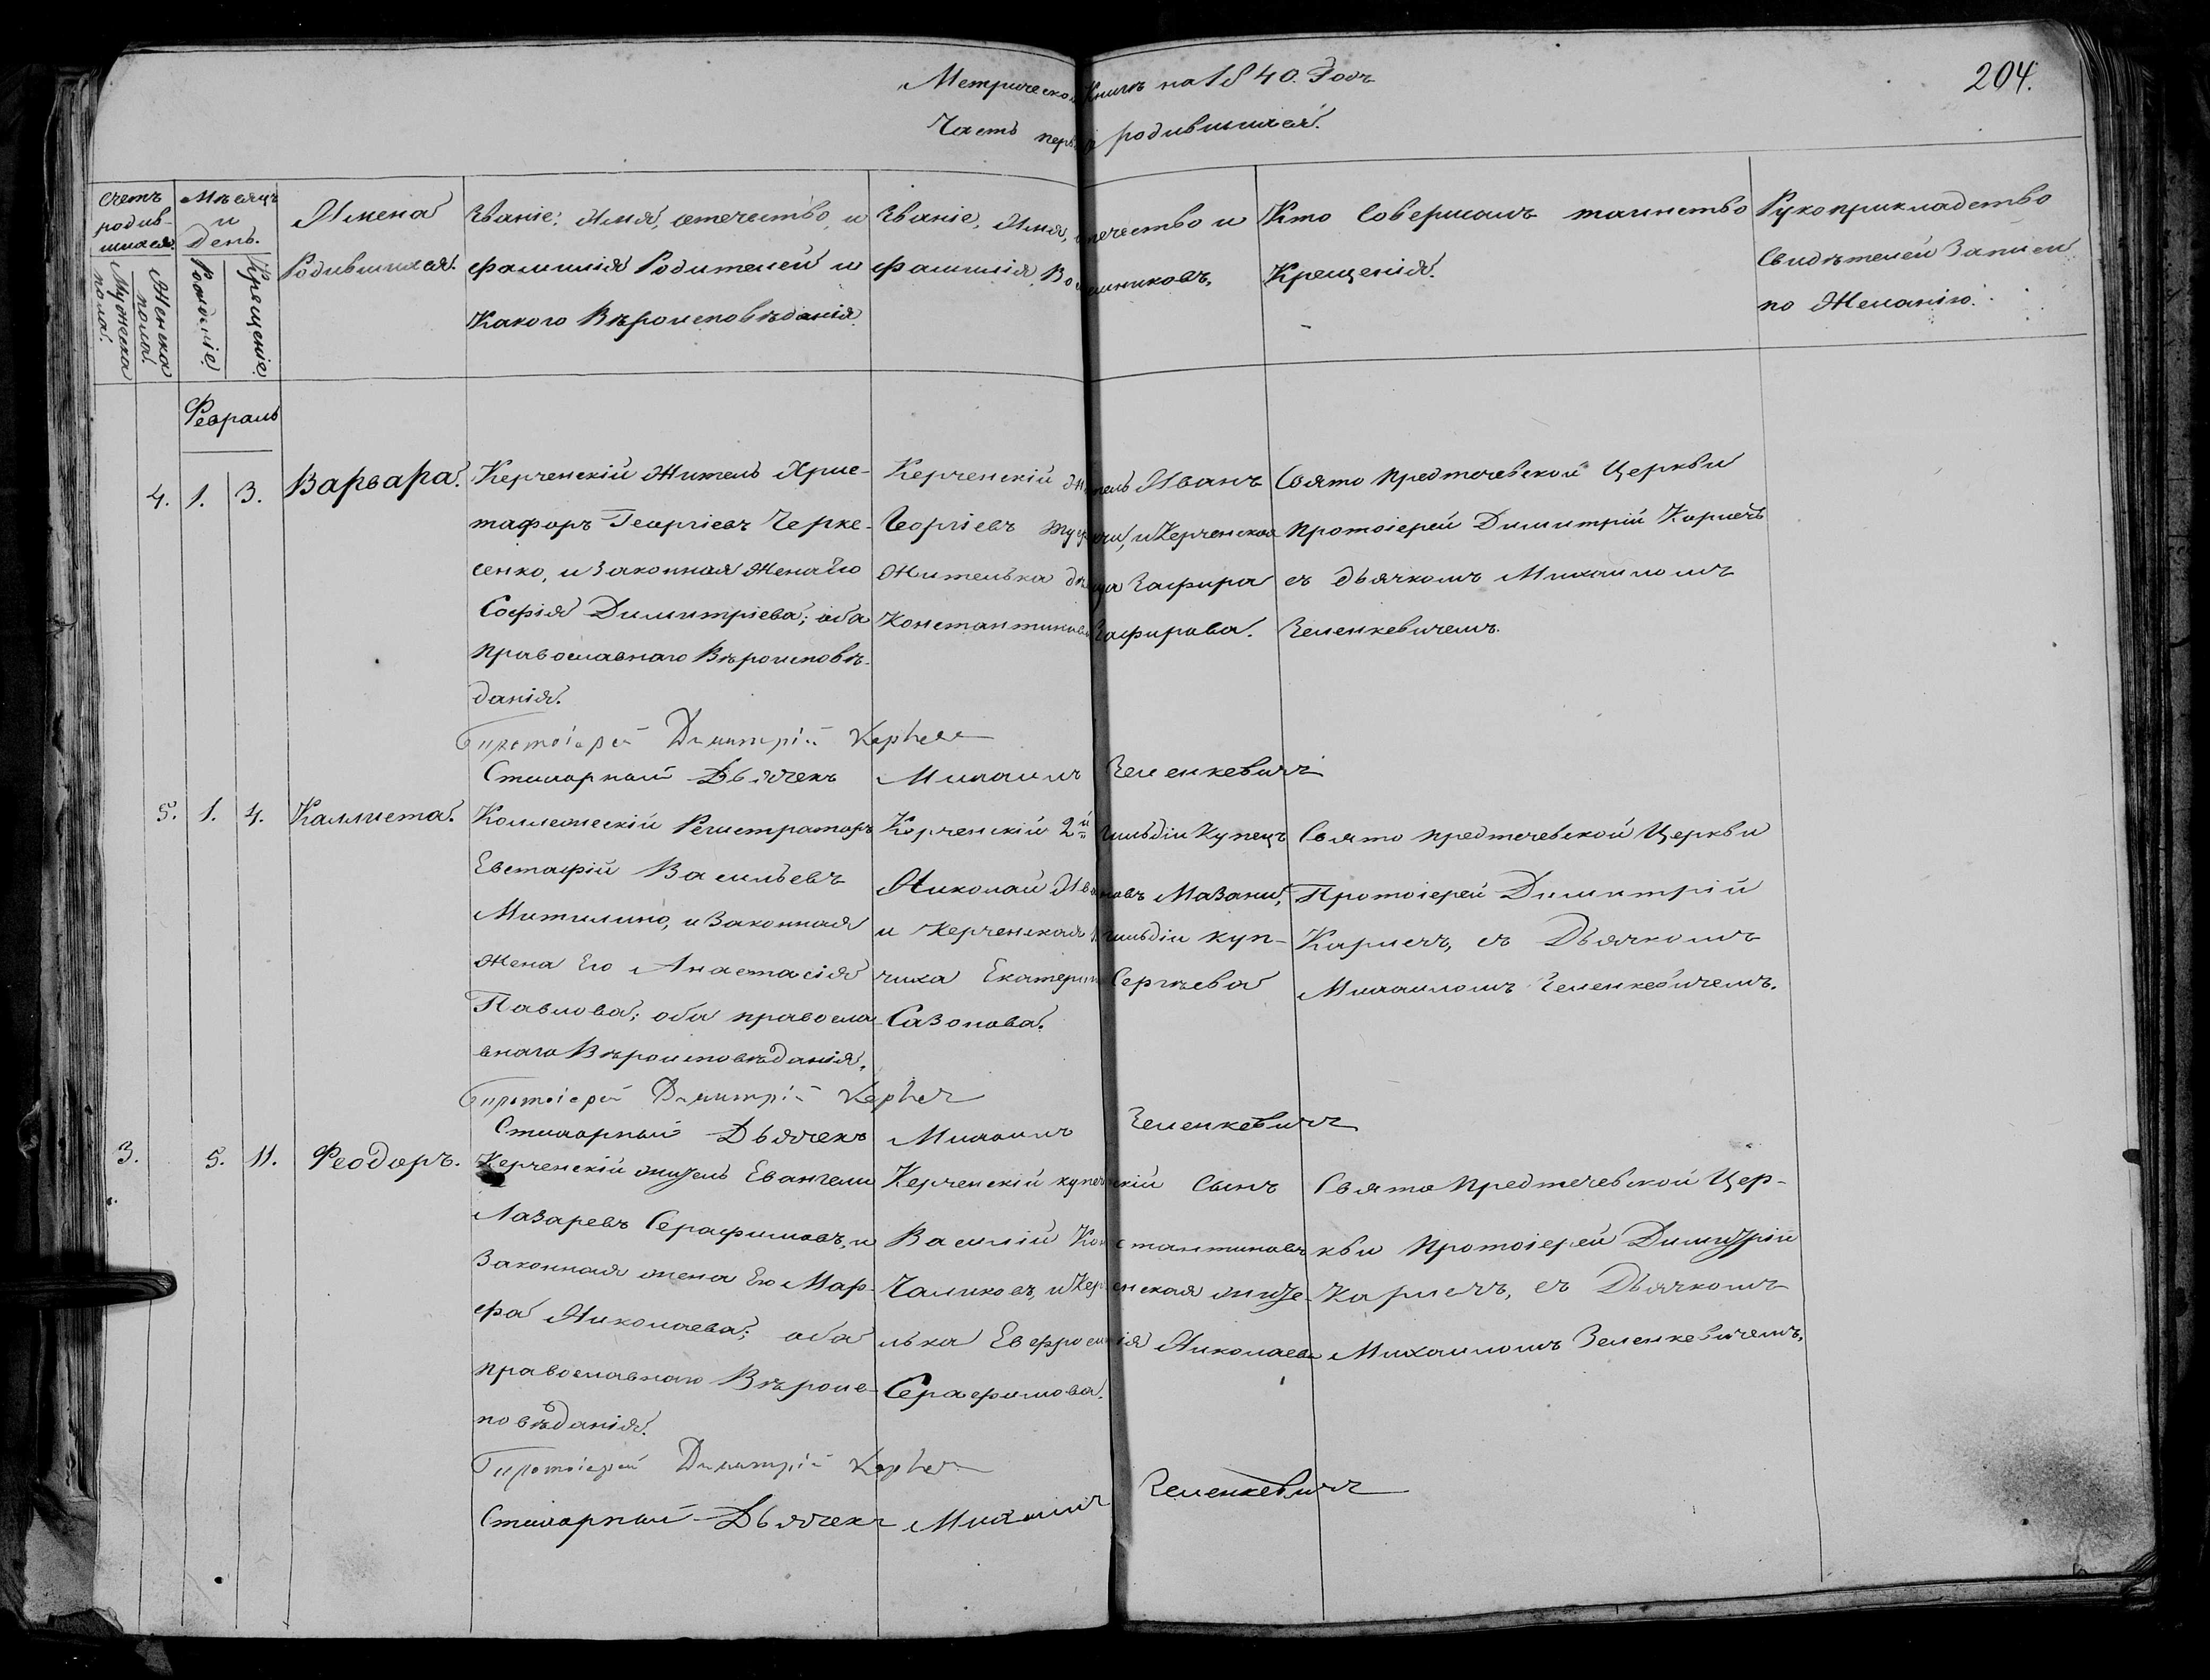 Метрической Книги на 1840. Годъ
204.
Часть первая о родившихся.
Счетъ родившихся.
Мужеска пола.
Женска пола.
Мѣсяцъ и День.
Рожденіе.
Крещеніе.
Имена Родившихся.
Званіе, Имя, отечество, и
фамилія Родителей и
Какого Вѣроисповѣданія.
Званіе, Имя, отечество и
фамилія Восприемниковъ.
Кто Совершалъ таинство
Крещенія.
Рукоприкладство
Свидѣтелей Записи
по Желанію.
Февраль
4. 1. 3. Варвара.
Керченскій Житель Хрис-
тафоръ Георгіевъ Черке-
сенко, и Законная Жена Его
Софія Димитріева; оба
Православнаго Вѣроисповѣ-
данія.
Керченскій Житель Иванъ
Георгіевъ и Керченская
Жителька дѣвица Зафира
Константинова Зафирова.
Свято Предтечевской Церкви
Протоіерей Димитрій Карнечъ
съ дьячкомъ Михаиломъ
Зеленкевичемъ.
Протоіерей Димитрій
Стихарный Дьячекъ Михаилъ Зеленкевичъ
5. 1. 4. Каллиста.
Коллежескій Регистраторъ
Евстафій Васильевъ
Митилино, и Законная
Жена Его Анастасія
Павлова; оба правосла-
внаго Вѣроисповѣданія.
Керченскій 2й Гильдіи Купецъ
Николай Ивановъ Мазани,
и Керченская Гильдіи куп-
чиха Екатерина Сергѣева
Сазонова.
Свято Предтечевской Церкви
Протоіерей Димитрій
Карнечъ, съ Дьячкомъ
Михаиломъ Зеленкевичемъ.
Протоіерей Димитрій
Стихарный Дьячекъ Михаилъ Зеленкевичъ
3. 5. 11. Феодоръ.
Керченскій житель Евангели
Лазаревъ Серафимовъ, и
Законная жена Его Мар-
фа Николаева; оба
православнаго Вѣроис-
повѣданія.
Керченскій купеческій Сынъ
Василій Константиновъ
Чаликовъ, и Керченская жите-
лька Евфросинія Николаева
Серафимова.
Свято Предтечевской Цер-
кви Протоіерей Димитрій
Карнечъ, съ Дьячкомъ
Михаиломъ Зеленкевичемъ.
Протоіерей Димитрій
Стихарный Дьячекъ Михаилъ Зеленкевичъ